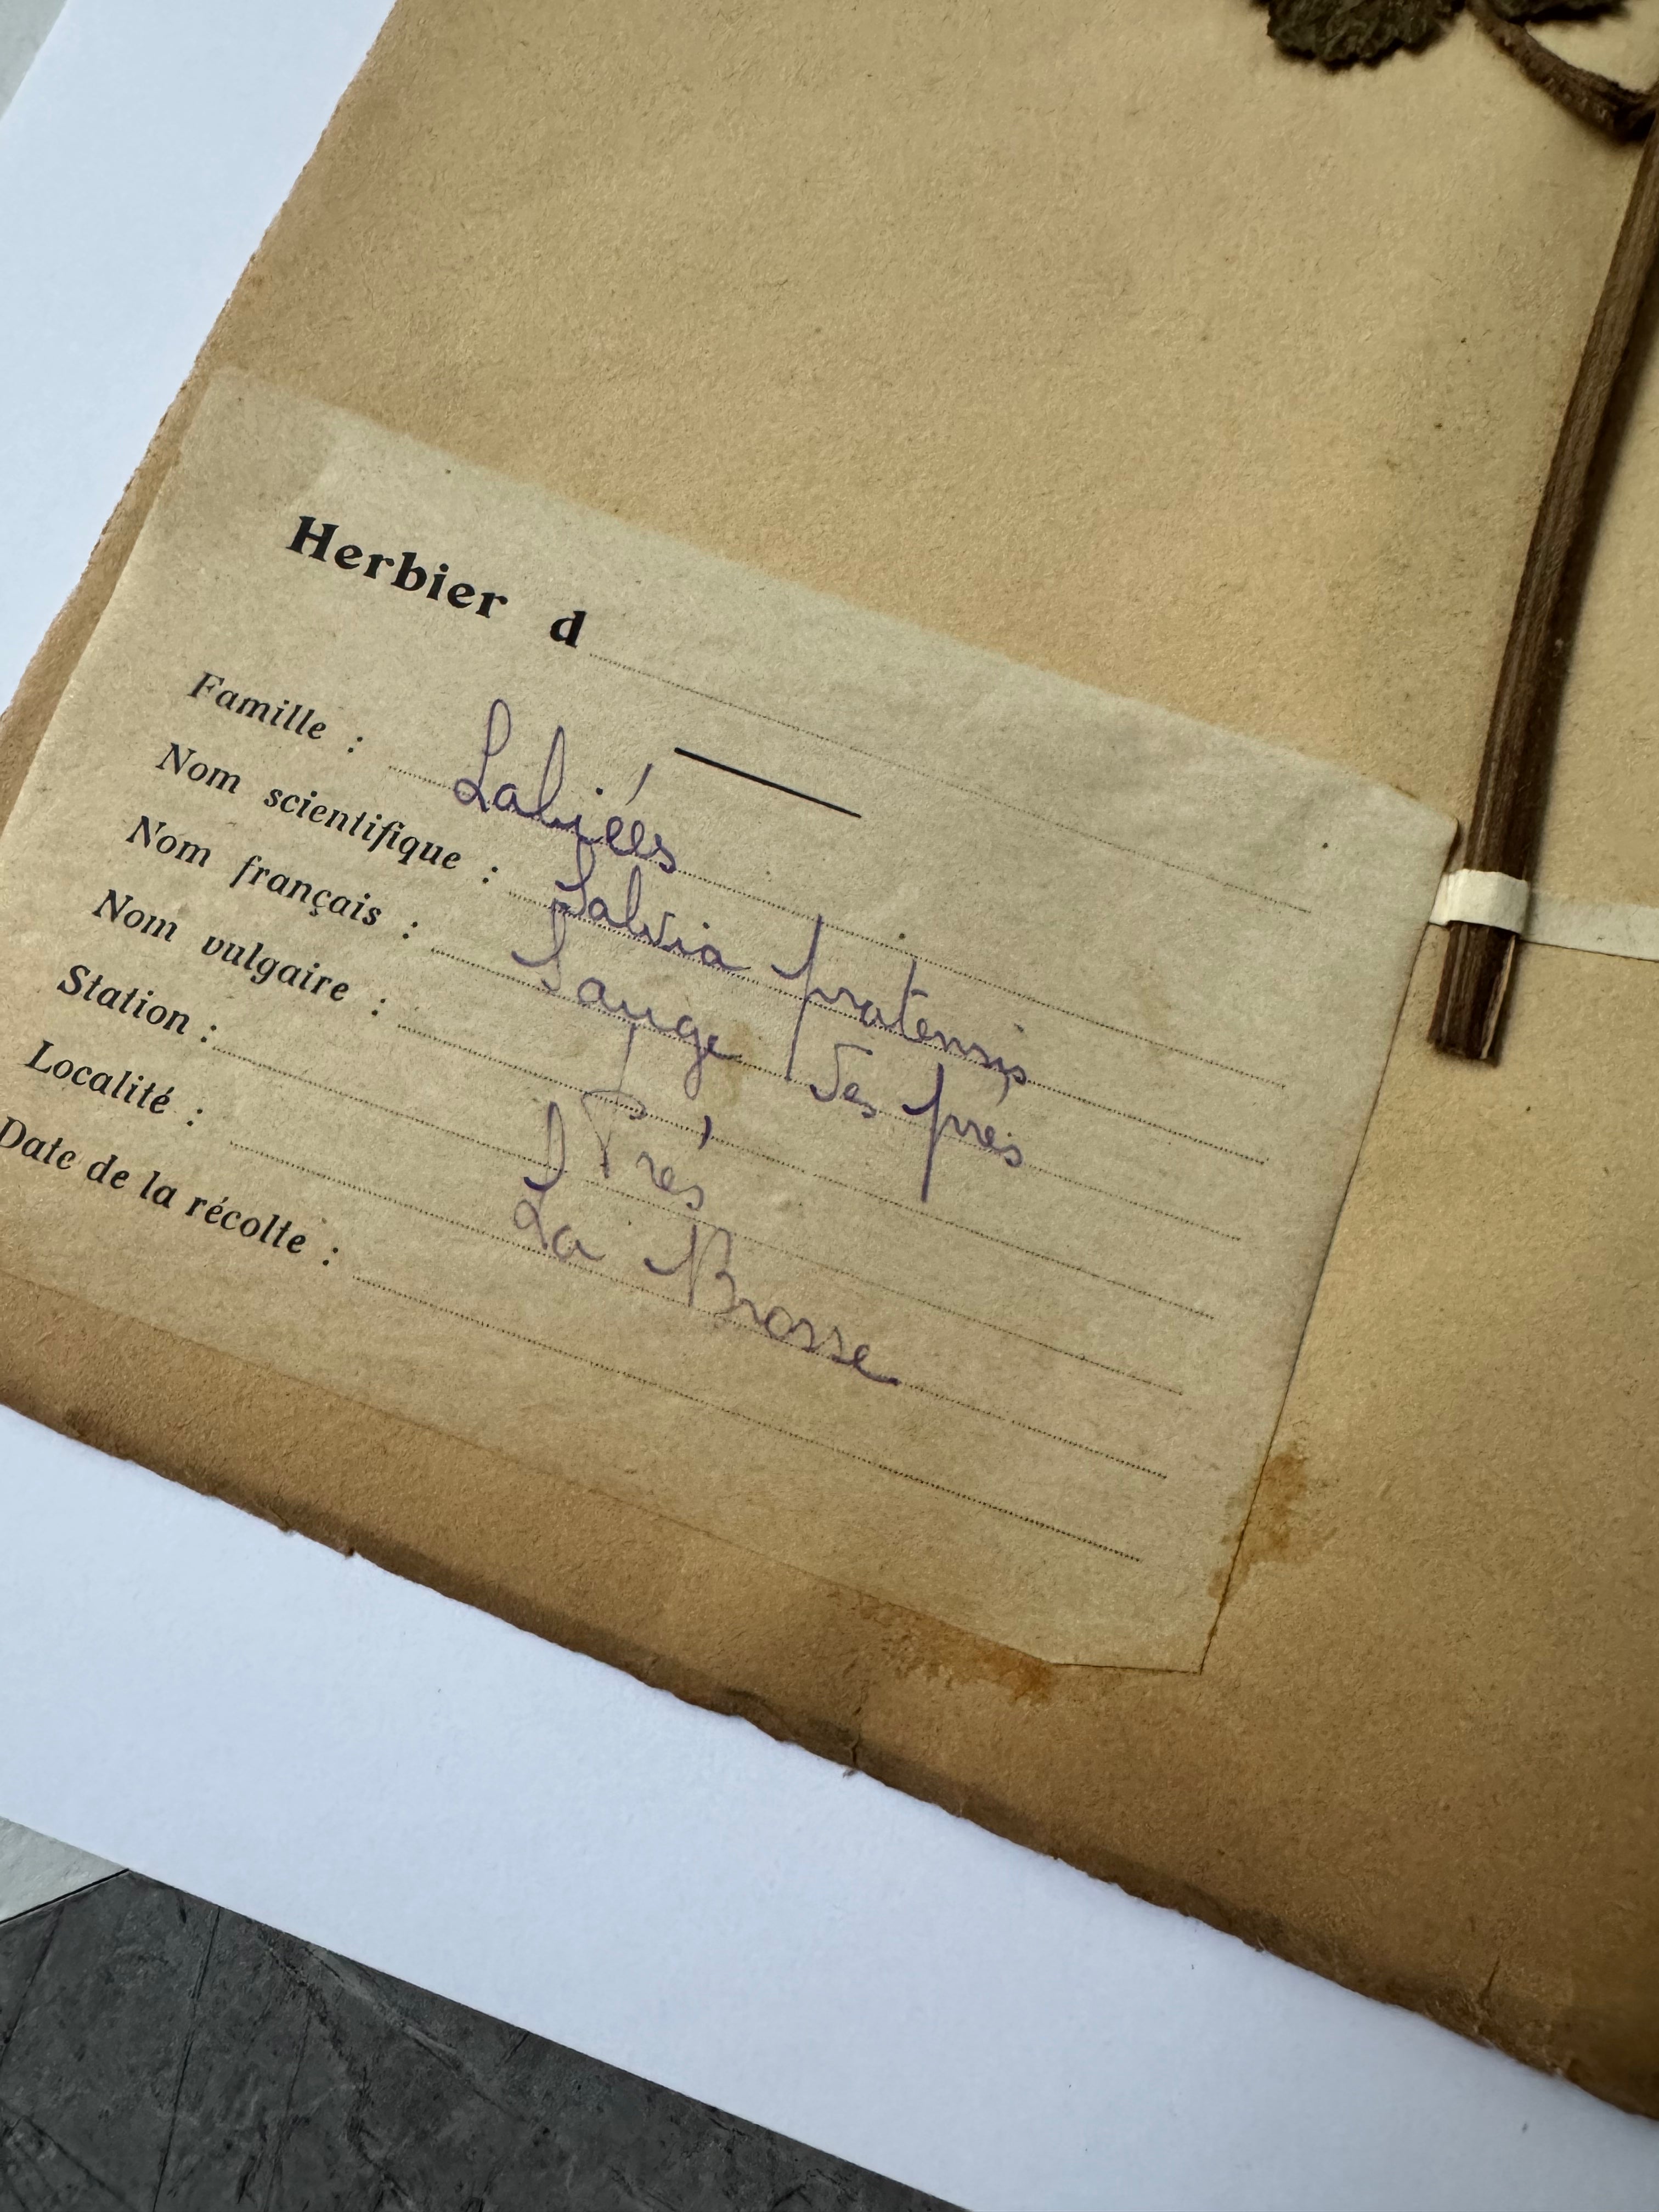 Herbier d
Famille : Labiées
Nom scientifique : Salvia pratensis
Nom français : Sauge des prés
Nom vulgaire :
Station : Prés
Localité : La Brosse
Date de la récolte :